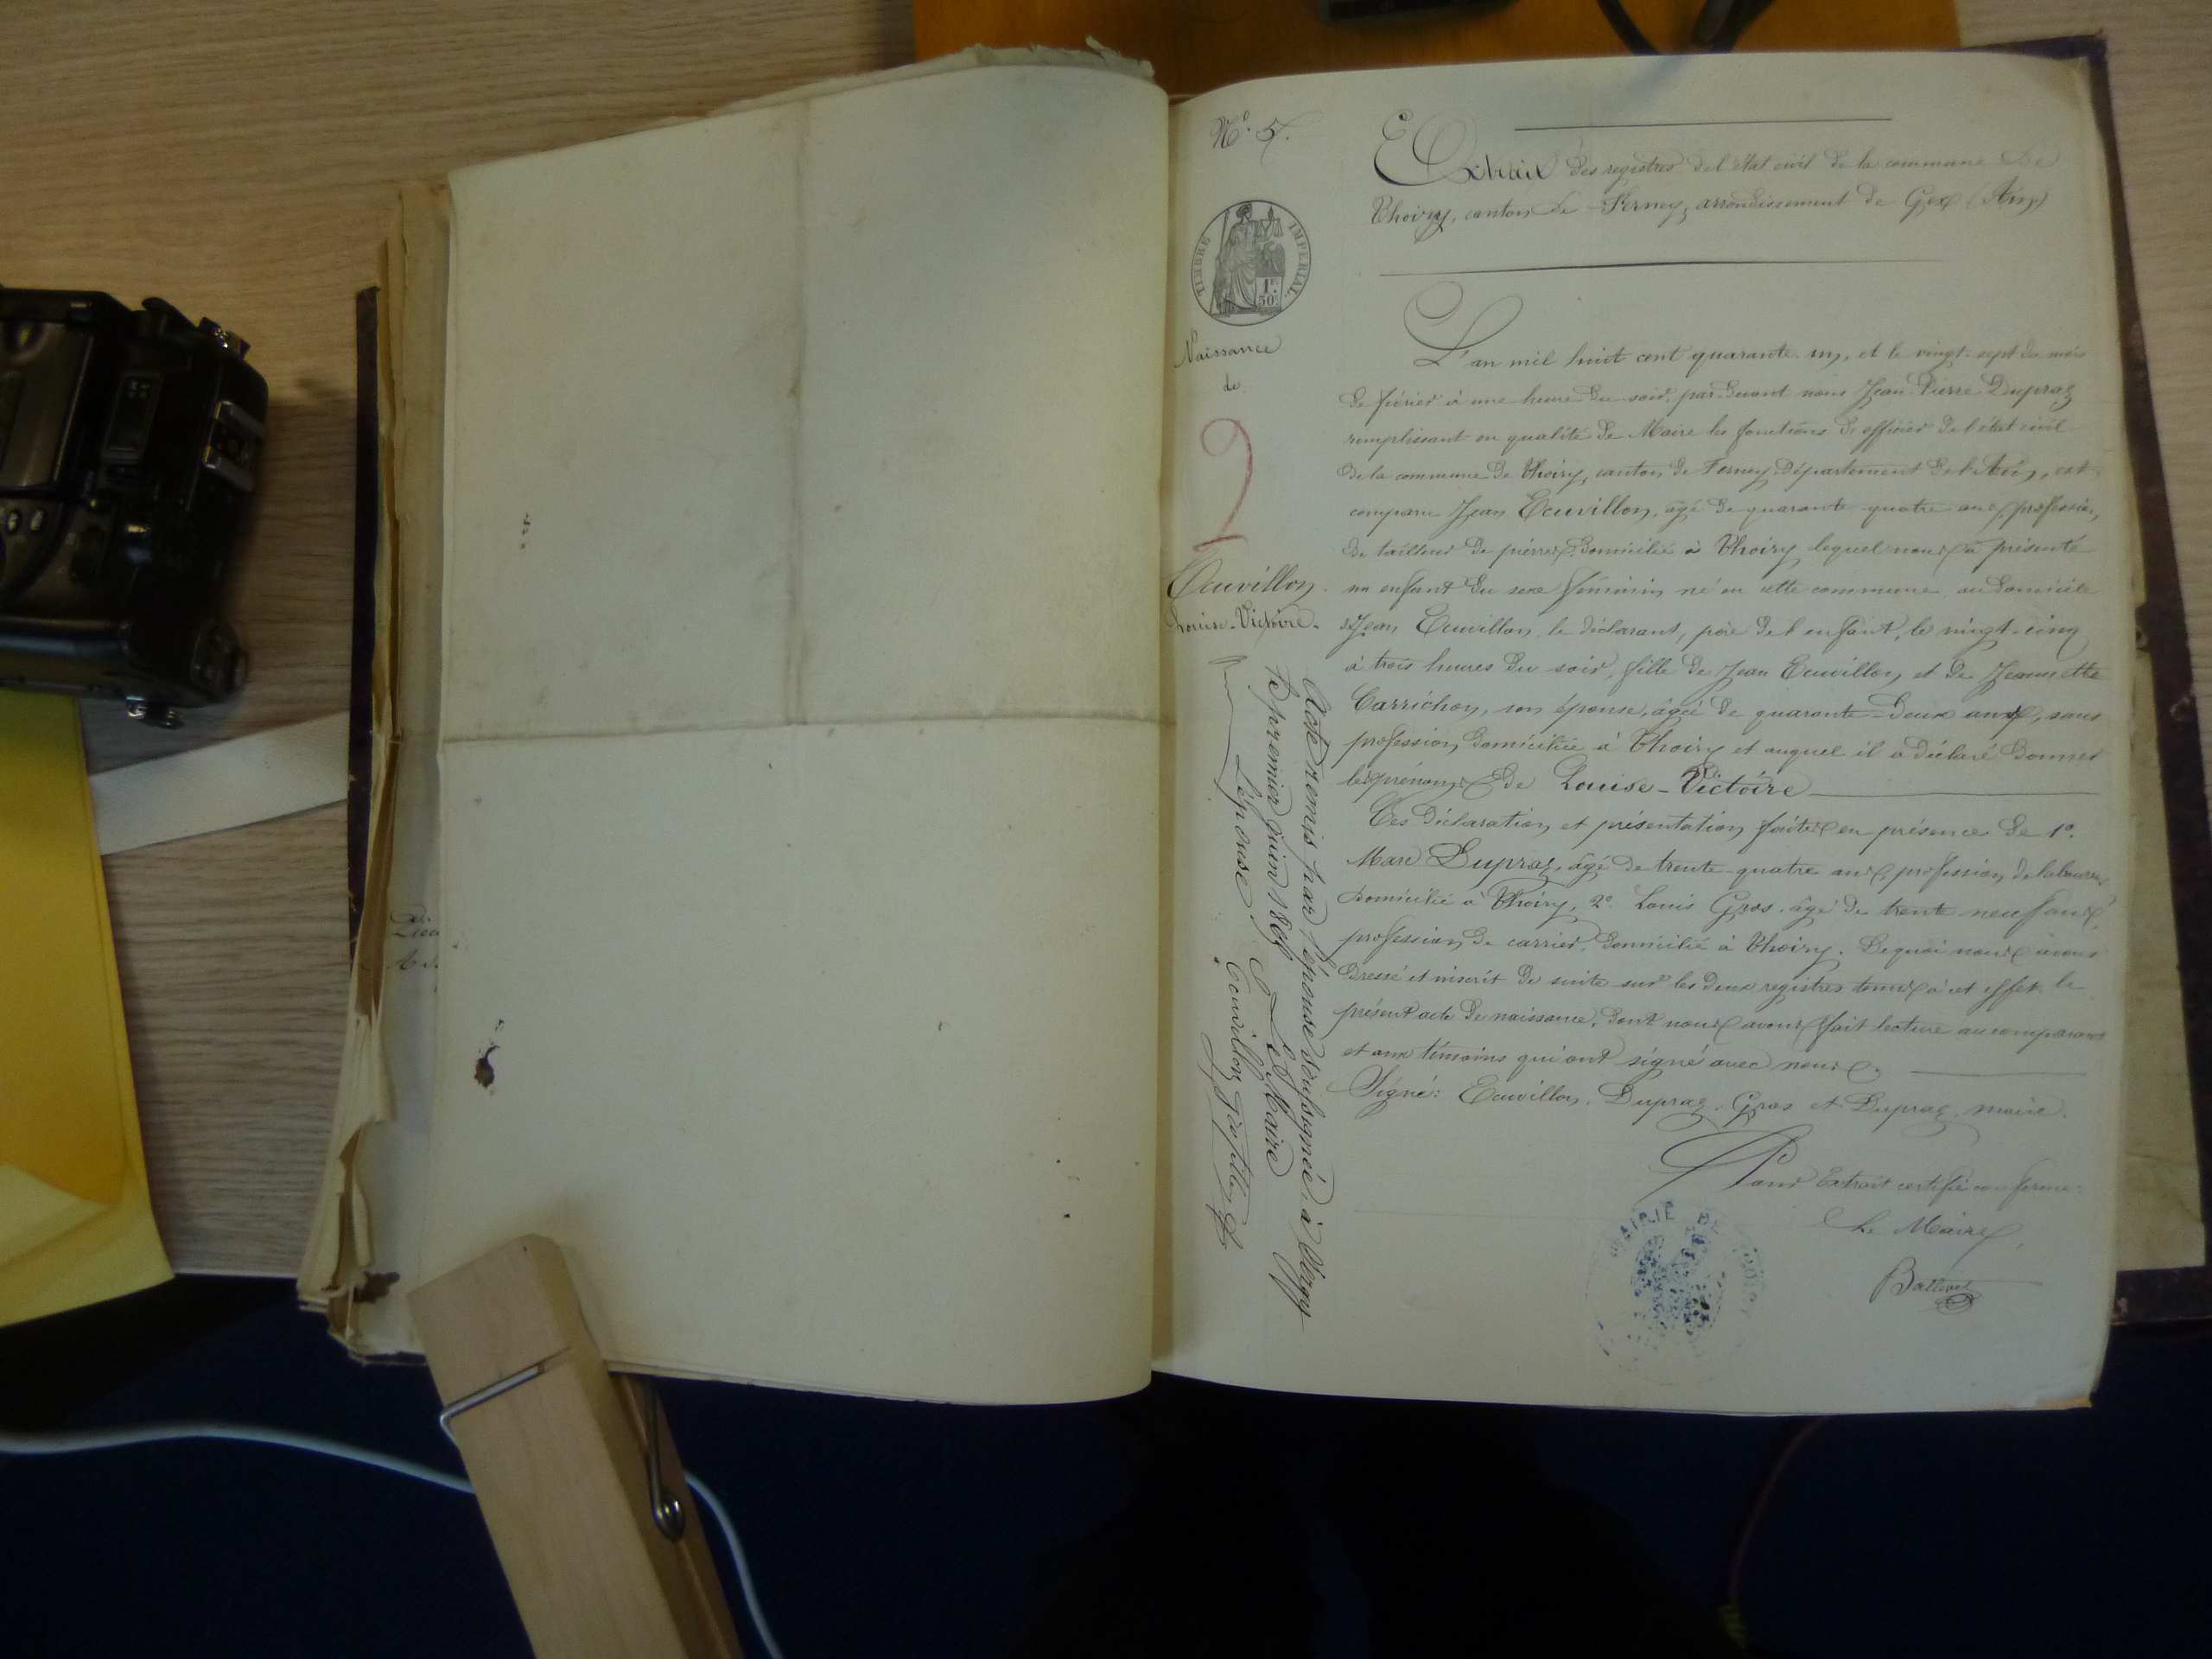 N° 5.
Extrait des registres de l'état civil de la commune de
Thoiry, canton de Ferney, arrondissement de Gex (Ain)
TIMBRE IMPERIAL
1F.
50C.
Naissance
de
Ecuvillon
Louise-Victoire.
L'an mil huit cent quarante-un, et le vingt-sept du mois
de février à une heure du soir, par devant nous Jean-Pierre Dupraz
remplissant en qualité de Maire les fonctions d'officier de l'état civil
de la commune de Thoiry, canton de Ferney, département de l'Ain, est
comparu Jean Ecuvillon, âgé de quarante-quatre ans, profession
de tailleur de pierres, domicilié à Thoiry lequel nous a présenté
un enfant du sexe féminin né en cette commune au domicile
Jean Ecuvillon, le déclarant, père de l'enfant, le vingt-cinq
à trois heures du soir, fille de Jean Ecuvillon, et de Jeannette
Carrichon, son épouse, âgée de quarante-deux ans, sans
profession, domiciliée à Thoiry et auquel il a déclaré donner
les prénoms de Louise-Victoire
Ces déclaration et présentation faites en présence de 1°.
Marc Dupraz, âgé de trente-quatre ans, profession de laboureur
domicilié à Thoiry, 2° Louis Gros, âgé de trente neuf ans,
profession de carrier, domicilié à Thoiry. De quoi nous avons
dressé et inscrit de suite sur les deux registres tenus à cet effet le
présent acte de naissance, dont nous avons fait lecture au comparant
et aux témoins qui ont signé avec nous.
Signé: Ecuvillon, Dupraz, Gros et Dupraz, maire.
Pour Extrait certifié conforme:
Le Maire,
MAIRIE DE
Acte remis par l'épouse soussignée, à Virzy
le premier juin
Le Maire
L'épouse
Ecuvillon